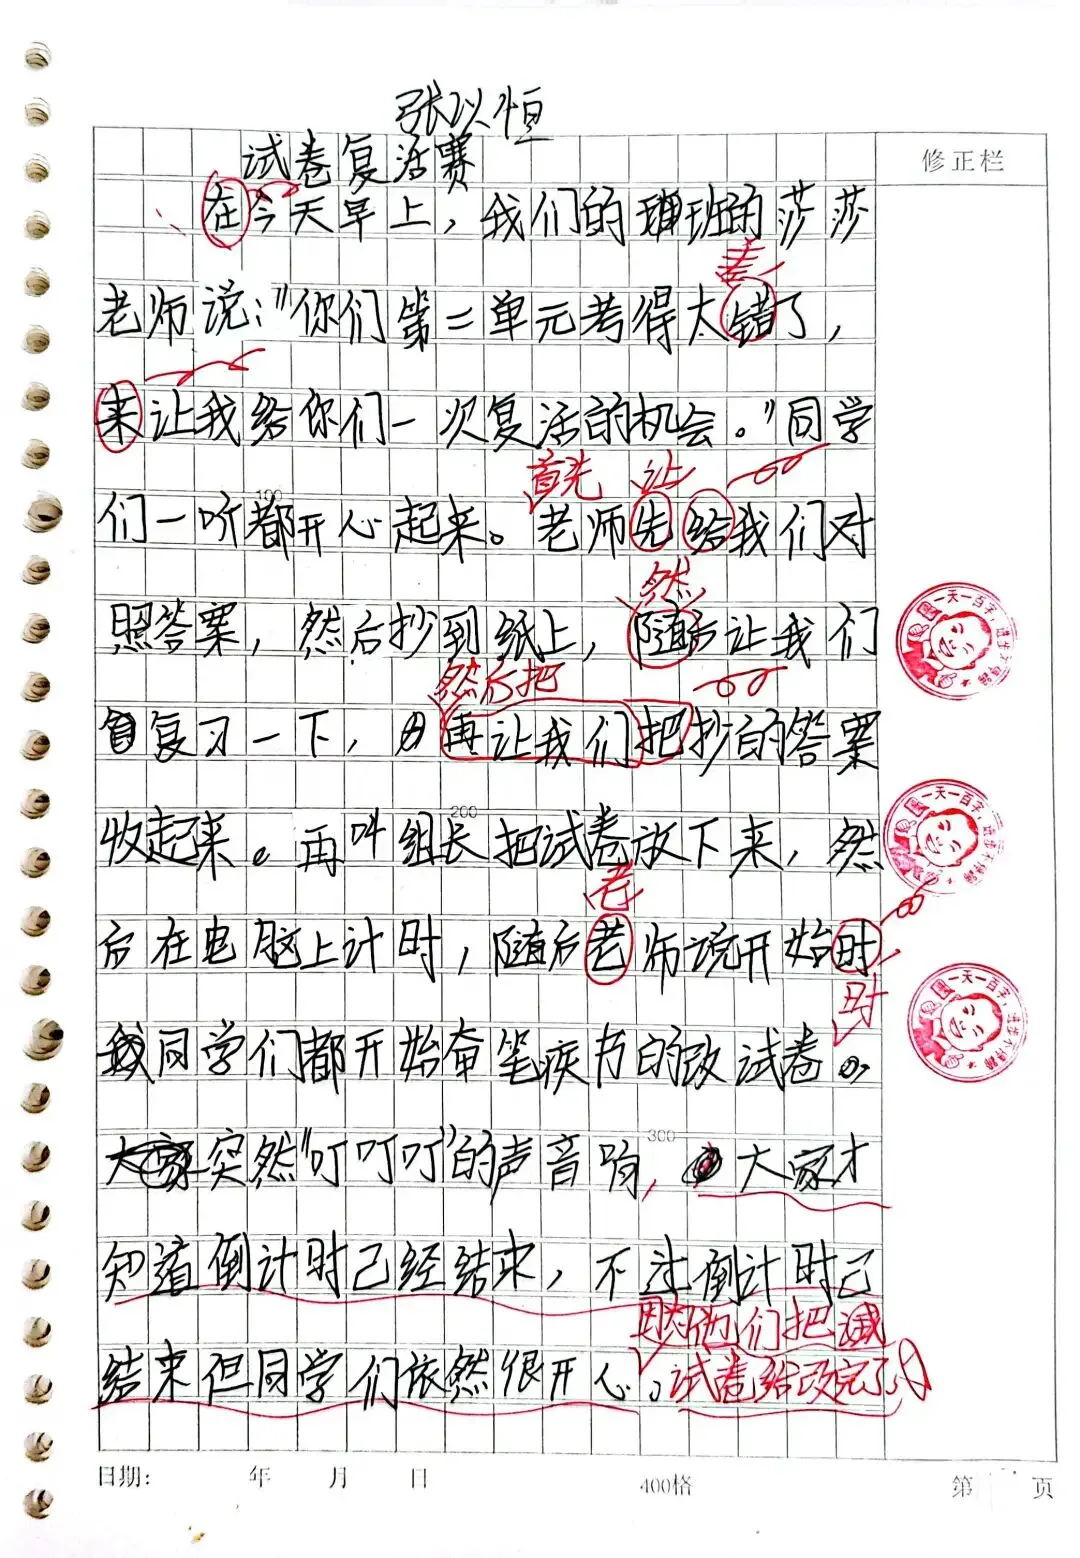 张以恒
试卷复活赛
修正栏
在今天早上，我们的班的莎莎
差
老师说："你们第二单元考得太错了，
来让我给你们一次复活的机会。"同学
首先 让
100
们一听都开心起来。老师先给我们对
然
照答案，然后抄到纸上，随后让我们
然后把
复习一下，再让我们把抄的答案
200
收起来。再叫组长把试卷放下来，然
老
后在电脑上计时，随后老师说开始时，
时
同学们都开始奋笔疾书的改试卷。
300
突然"叮叮叮"的声音响，大家才
知道倒计时已经结束，不过倒计时已
因为他们把
结束但同学们依然很开心。试卷给改完了。
日期： 年 月 日 400格 第 页
一天一百字，进步不得了
一天一百字，进步不得了
一天一百字，进步不得了